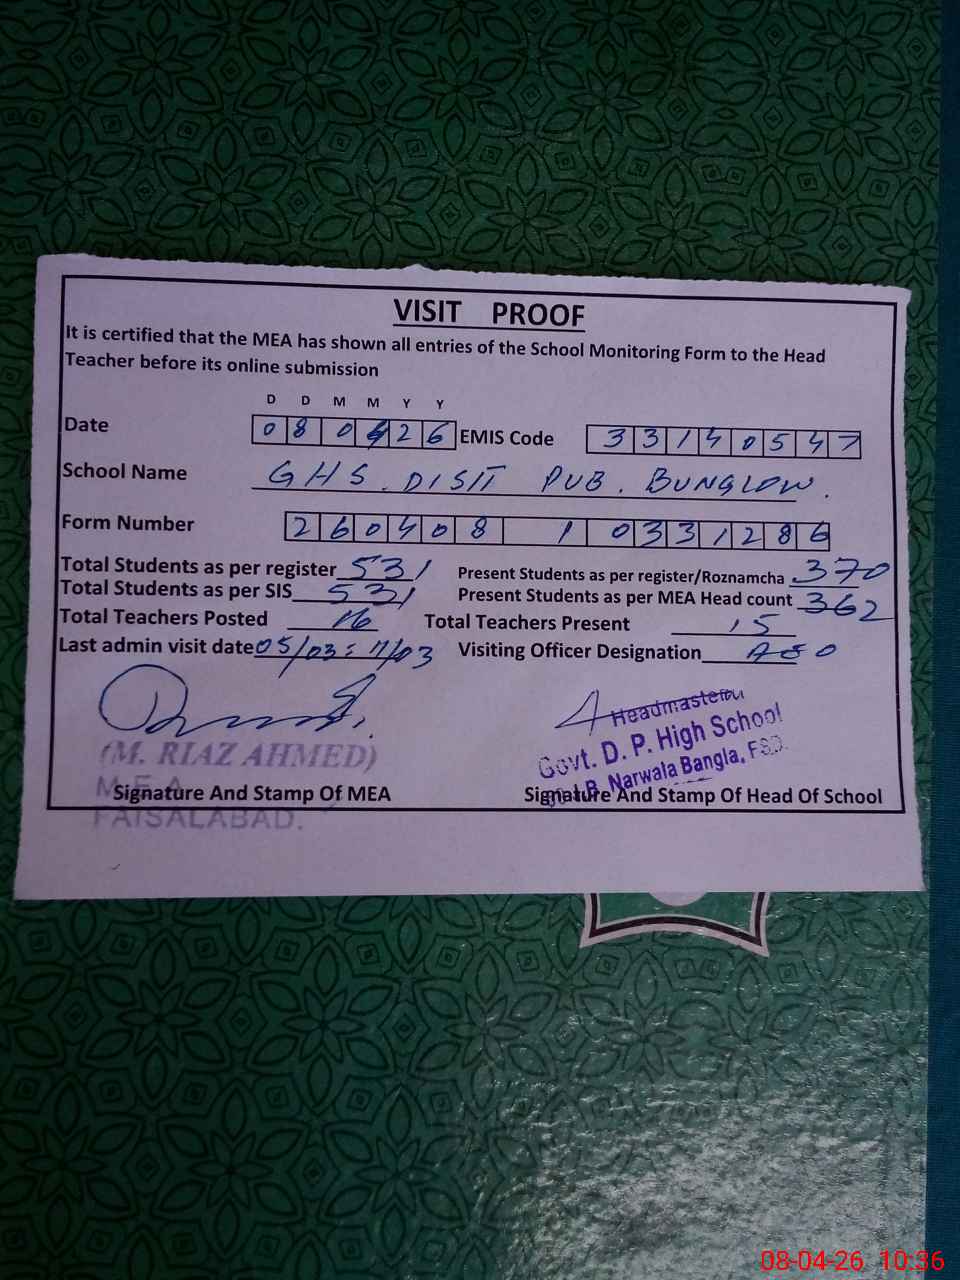 VISIT PROOF
It is certified that the MEA has shown all entries of the School Monitoring Form to the Head
Teacher before its online submission
D D M M Y Y
Date 0 8 0 4 2 6 EMIS Code 3 3 1 4 0 5 4 7
School Name GHS. DISTT PUB. BUNGLOW.
Form Number 2 6 0 4 0 8 1 0 3 3 1 2 8 6
Total Students as per register 531 Present Students as per register/Roznamcha 370
Total Students as per SIS 531 Present Students as per MEA Head count 362
Total Teachers Posted 16 Total Teachers Present 15
Last admin visit date 05/03 : 11/03 Visiting Officer Designation AEO
Headmaster
(M. RIAZ AHMED) Govt. D. P. High School
M.E.A Narwala Bangla, FSD.
Signature And Stamp Of MEA Signature And Stamp Of Head Of School
FAISALABAD.
08-04-26 10:36